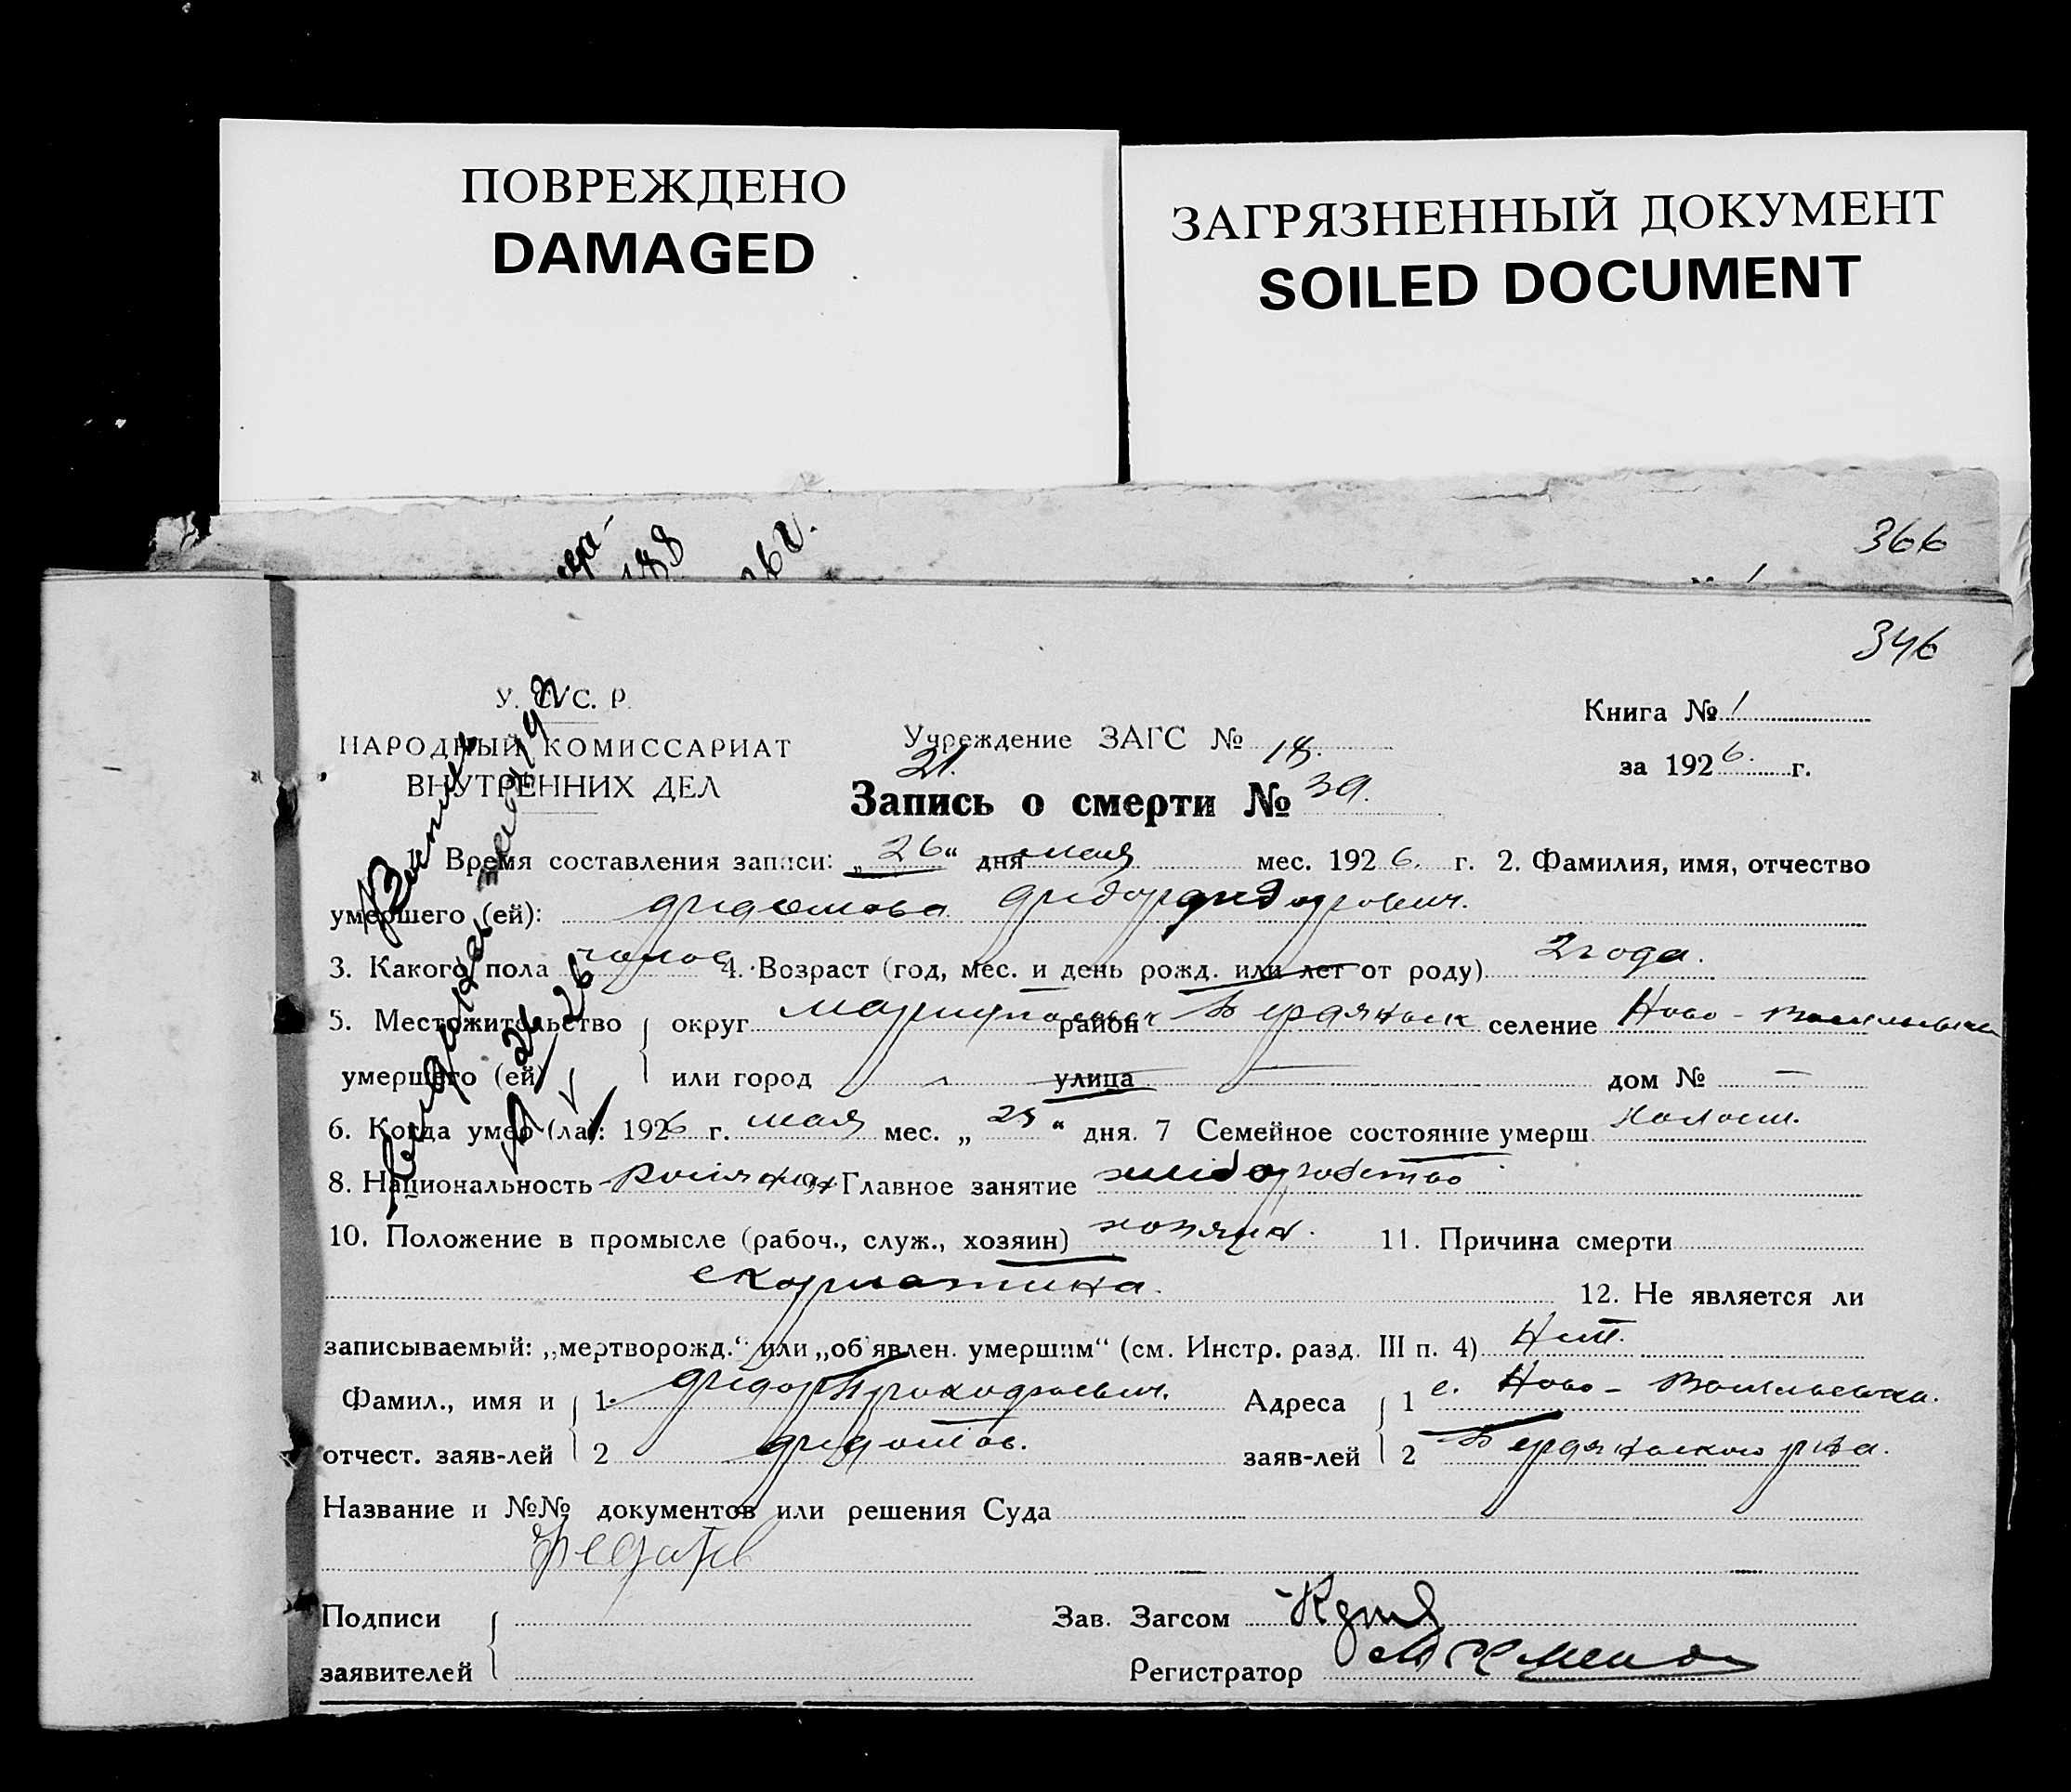 ПОВРЕЖДЕНО
DAMAGED
ЗАГРЯЗНЕННЫЙ ДОКУМЕНТ
SOILED DOCUMENT
366
346
У. С. С. Р.
НАРОДНЫЙ КОМИССАРИАТ
ВНУТРЕННИХ ДЕЛ
Учреждение ЗАГС № 18.
Книга № 1
за 1926. г.
21.
Запись о смерти № 39.
1. Время составления записи: „26“ дня мая мес. 1926. г. 2. Фамилия, имя, отчество
умершего (ей): Федотова Федор Федорович.
3. Какого пола 4. Возраст (год, мес. и день рожд. или лет от роду) 2 года.
5. Местожительство округ Мариупольск район Бердянск селение Ново-Васильевка
умершего (ей) или город улица дом № —
6. Когда умер (ла): 1926 г. мая мес. „25“ дня. 7 Семейное состояние умерш. холост.
8. Национальность 9. Главное занятие хлеборобство
10. Положение в промысле (рабоч., служ., хозяин) хозяин. 11. Причина смерти
скарлатина. 12. Не является ли
записываемый: „мертворожд.“ или „об'явлен. умершим“ (см. Инстр. разд. III п. 4) Нет.
Фамил., имя и 1. Федор Прокофьевич. Адреса 1 с. Ново-Васильевка.
отчест. заяв-лей 2 Федотов. заяв-лей 2 Бердянского р-на.
Название и №№ документов или решения Суда
Федотов
Подписи Зав. Загсом
заявителей Регистратор